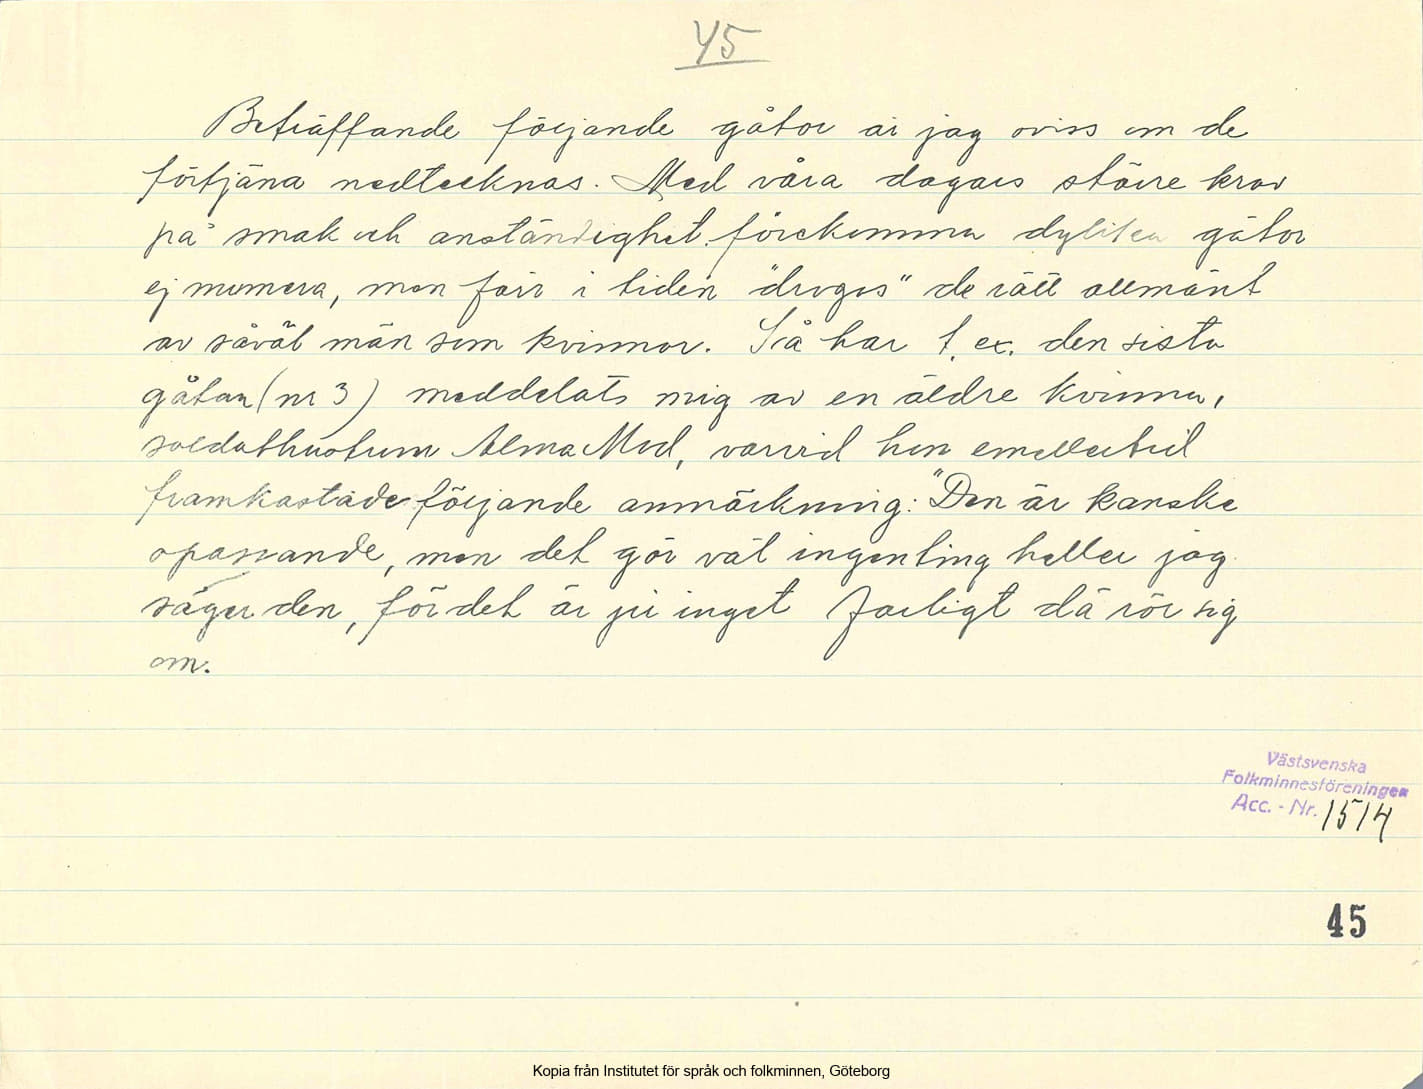 45
Beträffande följande gåtor är jag oviss om de
förtjäna nedtecknas. Med våra dagars större krav
på smak och anständighet förekomma dylika gåtor
ej numera, men förr i tiden "drogos" de rätt allmänt
av såväl män som kvinnor. Så har t. ex. den sista
gåtan (nr 3) meddelats mig av en äldre kvinna,
soldathustrun Alma Mod, varvid hon emellertid
framkastade följande anmärkning: "Den är kanske
opassande, men det gör väl ingenting heller jag
säger den, för det är ju inget farligt dä rör sig
om.
Västsvenska
Folkminnesföreningen
Acc. - Nr. 1514
45
Kopia från Institutet för språk och folkminnen, Göteborg